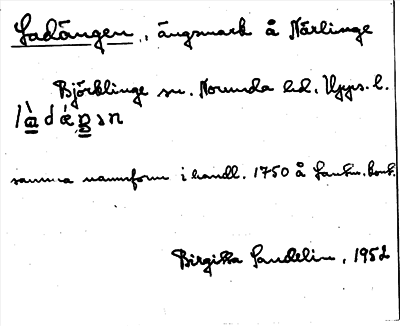 Ladängen, ängsmark å Närlinge
Björklinge sn. Norunda hd. Upps. l.
samma namnform i handl. 1750 å Lantm. kont.
Birgitta Sundelin, 1952